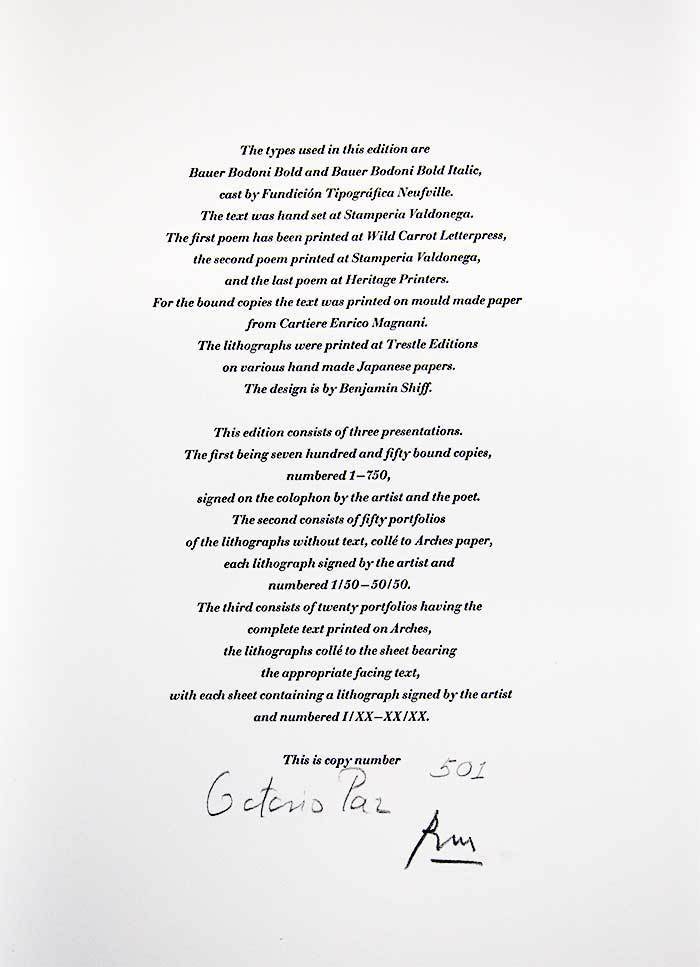 The types used in this edition are
Bauer Bodoni Bold and Bauer Bodoni Bold Italic,
cast by Fundición Tipográfica Neufville.
The text was hand set at Stamperia Valdonega.
The first poem has been printed at Wild Carrot Letterpress,
the second poem printed at Stamperia Valdonega,
and the last poem at Heritage Printers.
For the bound copies the text was printed on mould made paper
from Cartiere Enrico Magnani.
The lithographs were printed at Trestle Editions
on various hand made Japanese papers.
The design is by Benjamin Shiff.
This edition consists of three presentations.
The first being seven hundred and fifty bound copies,
numbered 1–750,
signed on the colophon by the artist and the poet.
The second consists of fifty portfolios
of the lithographs without text, collé to Arches paper,
each lithograph signed by the artist and
numbered 1/50–50/50.
The third consists of twenty portfolios having the
complete text printed on Arches,
the lithographs collé to the sheet bearing
the appropriate facing text,
with each sheet containing a lithograph signed by the artist
and numbered I/XX–XX/XX.
This is copy number 501
Octavio Paz